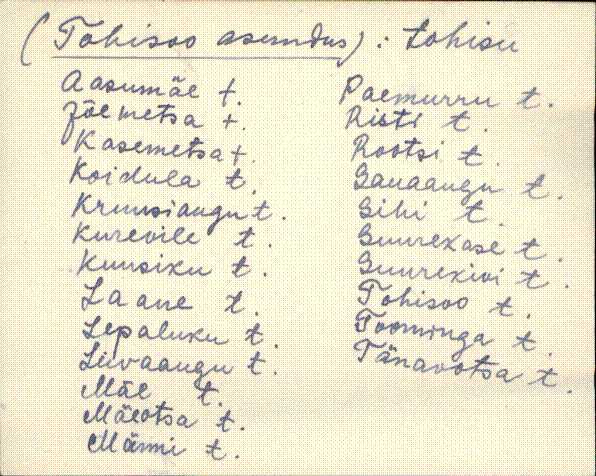 (Tohisoo asundus): Lohisu
Aasumäe t.
Jõemetsa t.
Kasemetsa t.
Koidula t.
Kruusiaugu t.
Kurevile t.
Kuusiku t.
Laane t.
Lepaluku t.
Liivaaugu t.
Mäe t.
Mäeotsa t.
Männi t.
Paemurru t.
Risti t.
Rootsi t.
Sauaaugu t.
Sihi t.
Suurekase t.
Suurekivi t.
Tohisoo t.
Toominga t.
Tänavotsa t.